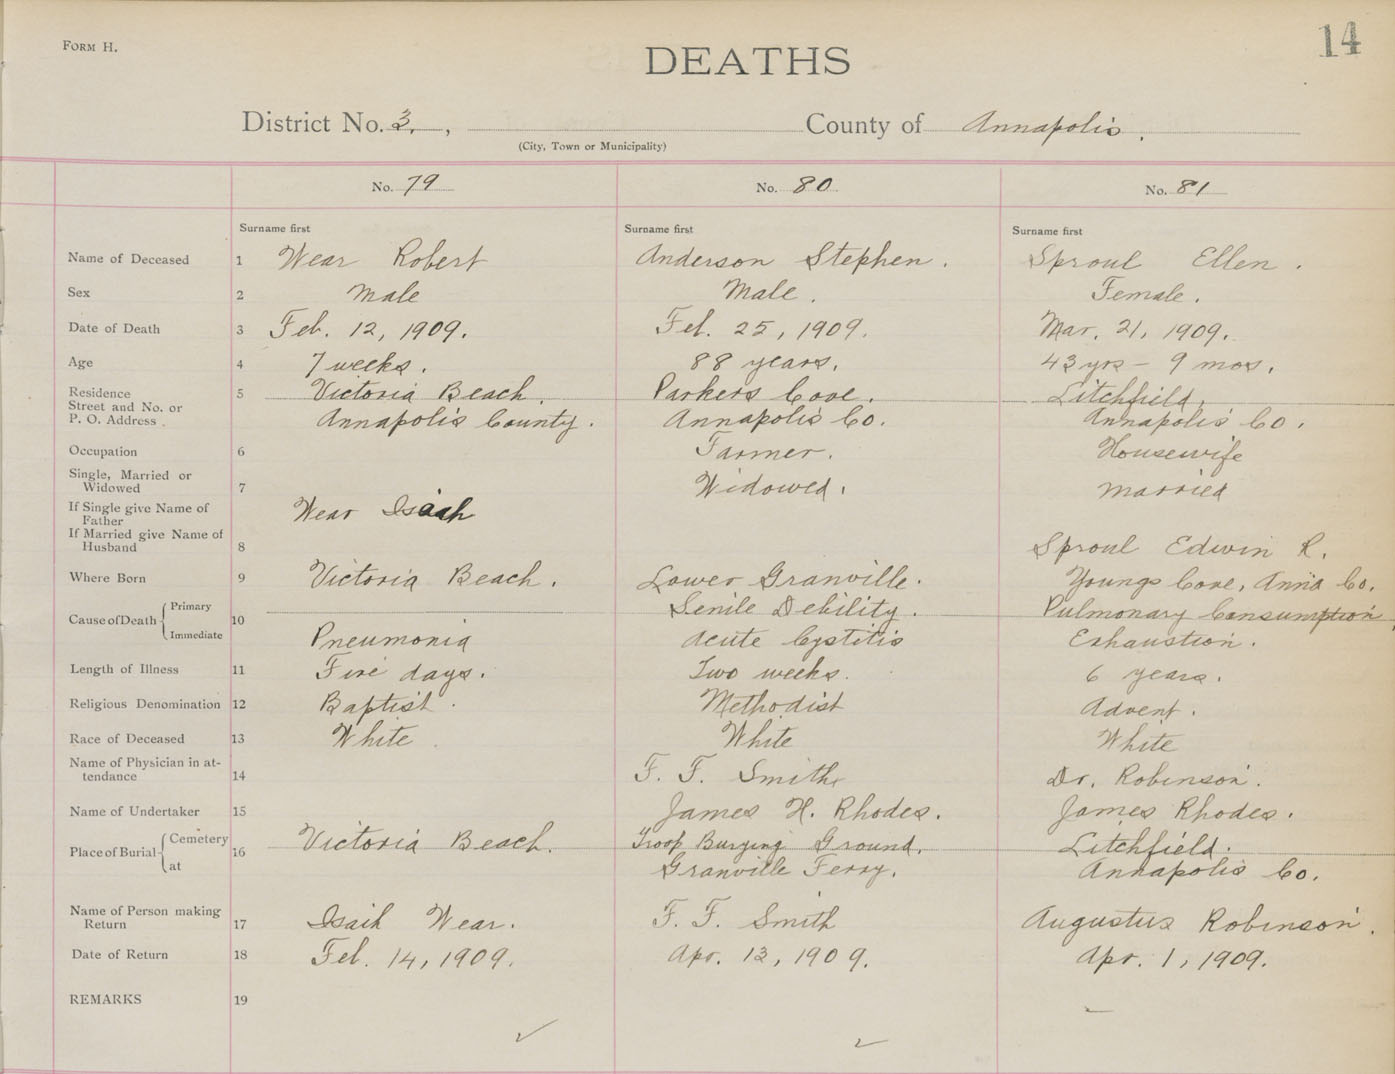 14
Form H.
DEATHS
District No. 3. , County of Annapolis.
(City, Town or Municipality)
No. 79 No. 80 No. 81
Surname first Surname first Surname first
Name of Deceased 1 Wear Robert Anderson Stephen. Sproul Ellen.
Sex 2 Male Male. Female.
Date of Death 3 Feb. 12, 1909. Feb. 25, 1909. Mar. 21, 1909.
Age 4 7 weeks. 88 years. 43 yrs - 9 mos.
Residence 5 Victoria Beach. Parkers Cove. Litchfield,
Street and No. or
P. O. Address. Annapolis County. Annapolis Co. Annapolis Co.
Occupation 6 Farmer. Housewife
Single, Married or
Widowed 7 Widowed. Married
If Single give Name of
Father Wear Isaiah
If Married give Name of
Husband 8 Sproul Edwin R.
Where Born 9 Victoria Beach. Lower Granville. Youngs Cove, Anna Co.
Cause of Death Primary 10 Senile Debility. Pulmonary Consumption
Immediate Pneumonia Acute Cystitis Exhaustion.
Length of Illness 11 Five days. Two weeks. 6 years.
Religious Denomination 12 Baptist. Methodist Advent.
Race of Deceased 13 White. White White
Name of Physician in at-
tendance 14 F. F. Smith Dr. Robinson.
Name of Undertaker 15 James H. Rhodes. James Rhodes.
Place of Burial Cemetery 16 Victoria Beach. Troop Burying Ground. Litchfield.
at Granville Ferry. Annapolis Co.
Name of Person making
Return 17 Isaih Wear. F. F. Smith Augustus Robinson.
Date of Return 18 Feb. 14, 1909. Apr. 13, 1909. Apr. 1, 1909.
REMARKS 19